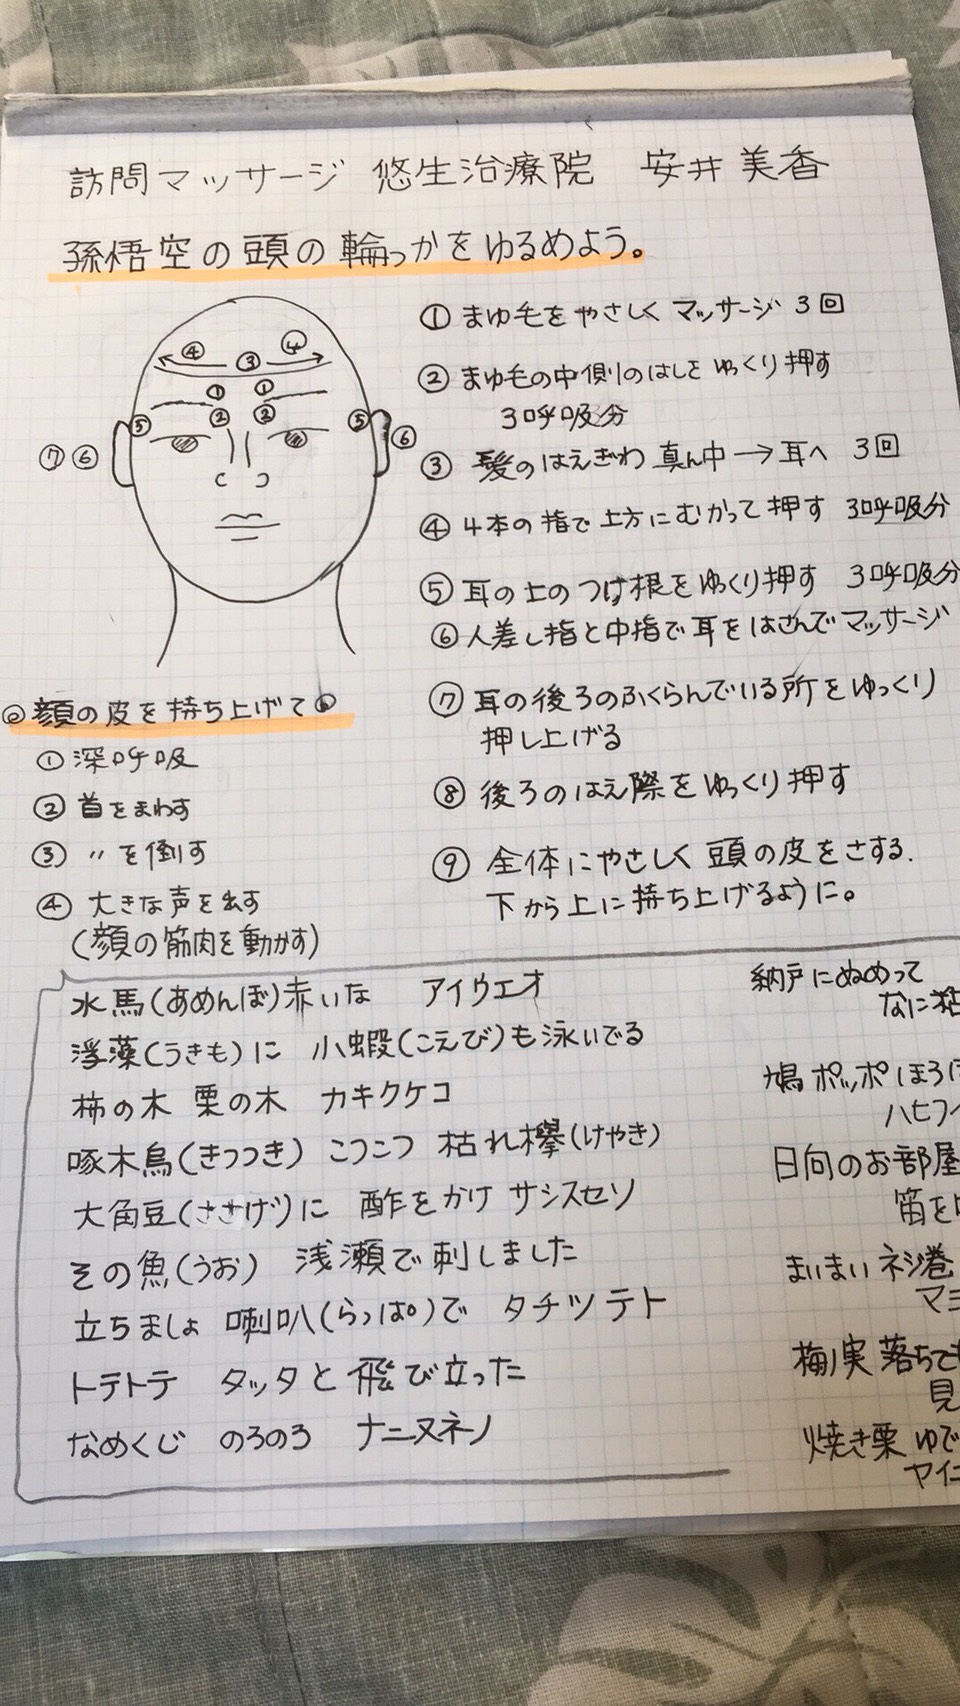 訪問マッサージ 悠生治療院 安井 美香
孫悟空の頭の輪っかをゆるめよう。
④ ③ ④
① ①
② ②
⑤ ⑤
⑦ ⑥ ⑥
① まゆ毛をやさしく マッサージ 3回
② まゆ毛の中側のはしを ゆっくり押す
3呼吸分
③ 髪のはえぎわ 真ん中→耳へ 3回
④ 4本の指で上方にむかって押す 3呼吸分
⑤ 耳の上のつけ根をゆっくり押す 3呼吸分
⑥ 人差し指と中指で耳をはさんでマッサージ
⑦ 耳の後ろのふくらんでいる所をゆっくり
押し上げる
⑧ 後ろのはえ際をゆっくり押す
⑨ 全体にやさしく 頭の皮をさする.
下から上に持ち上げるように。
◎顔の皮を持ち上げて◎
① 深呼吸
② 首をまわす
③ 〃を倒す
④ 大きな声を出す
(顔の筋肉を動かす)
水馬(あめんぼ)赤いな アイウエオ
浮藻(うきも)に 小蝦(こえび)も泳いでる
柿の木 栗の木 カキクケコ
啄木鳥(きつつき) こつこつ 枯れ欅(けやき)
大角豆(ささげ)に 酢をかけ サシスセソ
その魚(うお) 浅瀬で刺しました
立ちましょ 喇叭(らっぱ)で タチツテト
トテトテ タッタと飛び立った
なめくじ のろのろ ナニヌネノ
納戸にぬめって
なに
鳩ポッポ ほろ
ハヒフ
日向のお部屋
笛を
まいまい ネジ巻
マ
梅ノ実 落ちても
見
焼き栗 ゆで
ヤイ